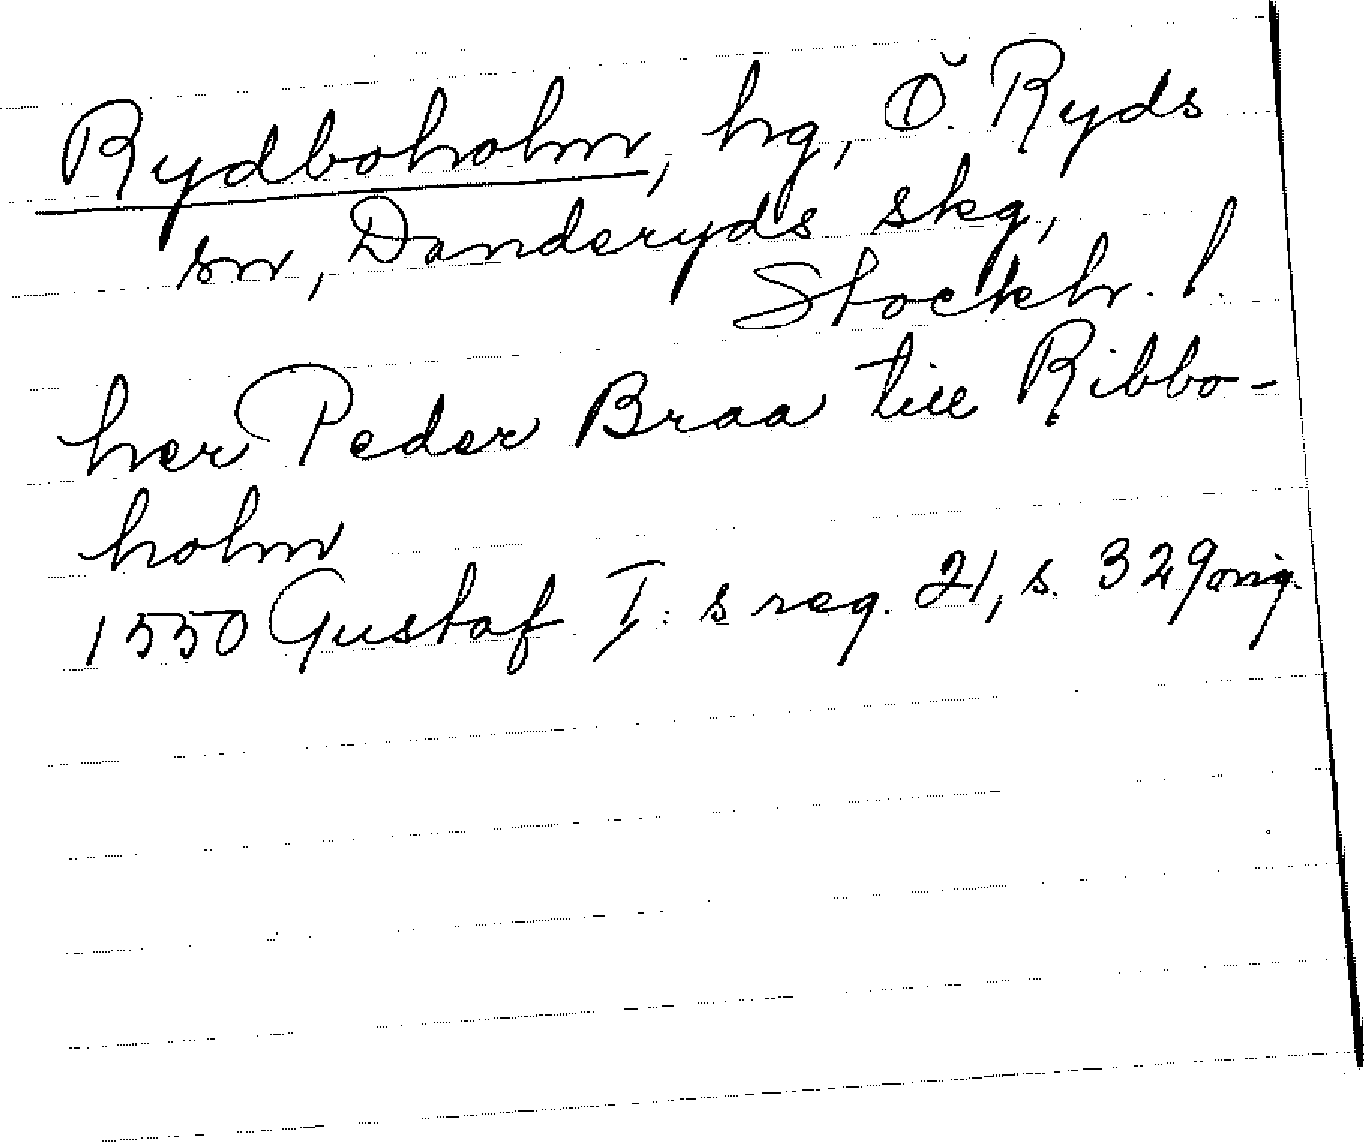 Rydboholm, hg, Ö. Ryds
sn, Danderyds skg,
Stockh. l.
her Peder Braa till Ribbo-
holm
1550 Gustaf I: s reg. 21, s. 329 orig.